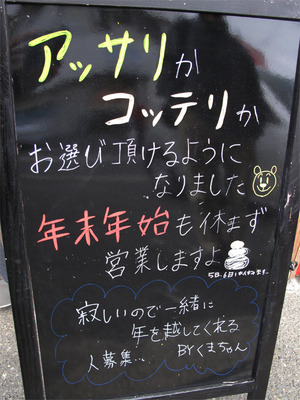 アッサリか
コッテリか
お選び頂けるように
なりました
年末年始も休まず
営業しますよ
寂しいので一緒に
年を越してくれる
人募集‥ BYくまちゃん